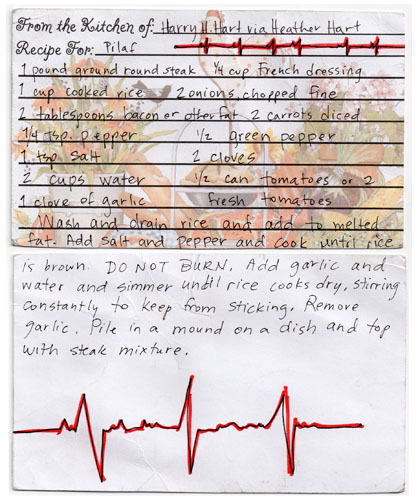 From the Kitchen of: Harry H. Hart via Heather Hart
Recipe For: Pilaf
1 pound ground round steak 1/4 cup French dressing
1 cup cooked rice 2 onions, chopped fine
2 tablespoons bacon or other fat 2 carrots diced
1/4 tsp. pepper 1/2 green pepper
1 tsp salt 2 cloves
2 cups water 1/2 can tomatoes or 2
1 clove of garlic fresh tomatoes
Wash and drain rice and add to melted
fat. Add salt and pepper and cook until rice
is brown. DO NOT BURN. Add garlic and
water and simmer until rice cooks dry, stirring
constantly to keep from sticking. Remove
garlic. Pile in a mound on a dish and top
with steak mixture.